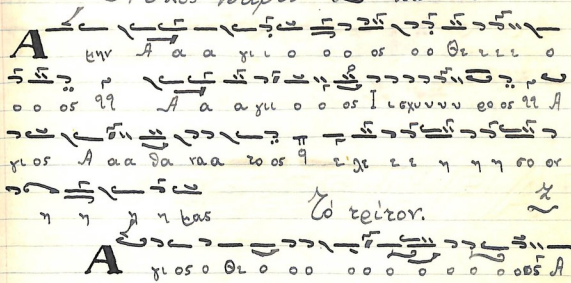 Α μην Α α α γι ι ο ο ο ος ο ο Θε ε ε ε ο
ο ο ος Α α α γιι ο ο ος Ι ισχυυυυ ρο ος Α
γι ος Α αα θα ναα το ος ε λε ε ε η η η σο ον
η η η η μας Τό τρίτον.
Α γι ος ο Θε ο ο ο ο ο ο ο ο ο οος Α